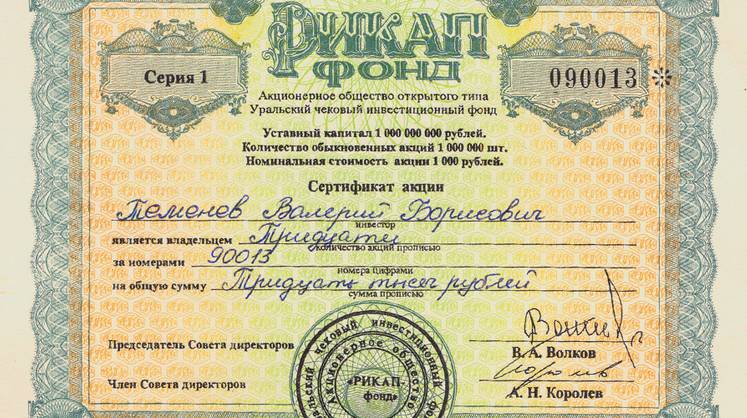 РИКАП
ФОНД
Серия 1
090013 *
Акционерное общество открытого типа
Уральский чековый инвестиционный фонд
Уставный капитал 1 000 000 000 рублей.
Количество обыкновенных акций 1 000 000 шт.
Номинальная стоимость акции 1 000 рублей.
Сертификат акции
Теменев Валерий Борисович
инвестор
является владельцем Тридцати
количество акций прописью
за номерами 90013
номера цифрами
на общую сумму Тридцать тысяч рублей
сумма прописью
Председатель Совета директоров
В. А. Волков
Член Совета директоров
А. Н. Королев
Уральский чековый инвестиционный фонд
Акционерное общество
«РИКАП-
фонд»